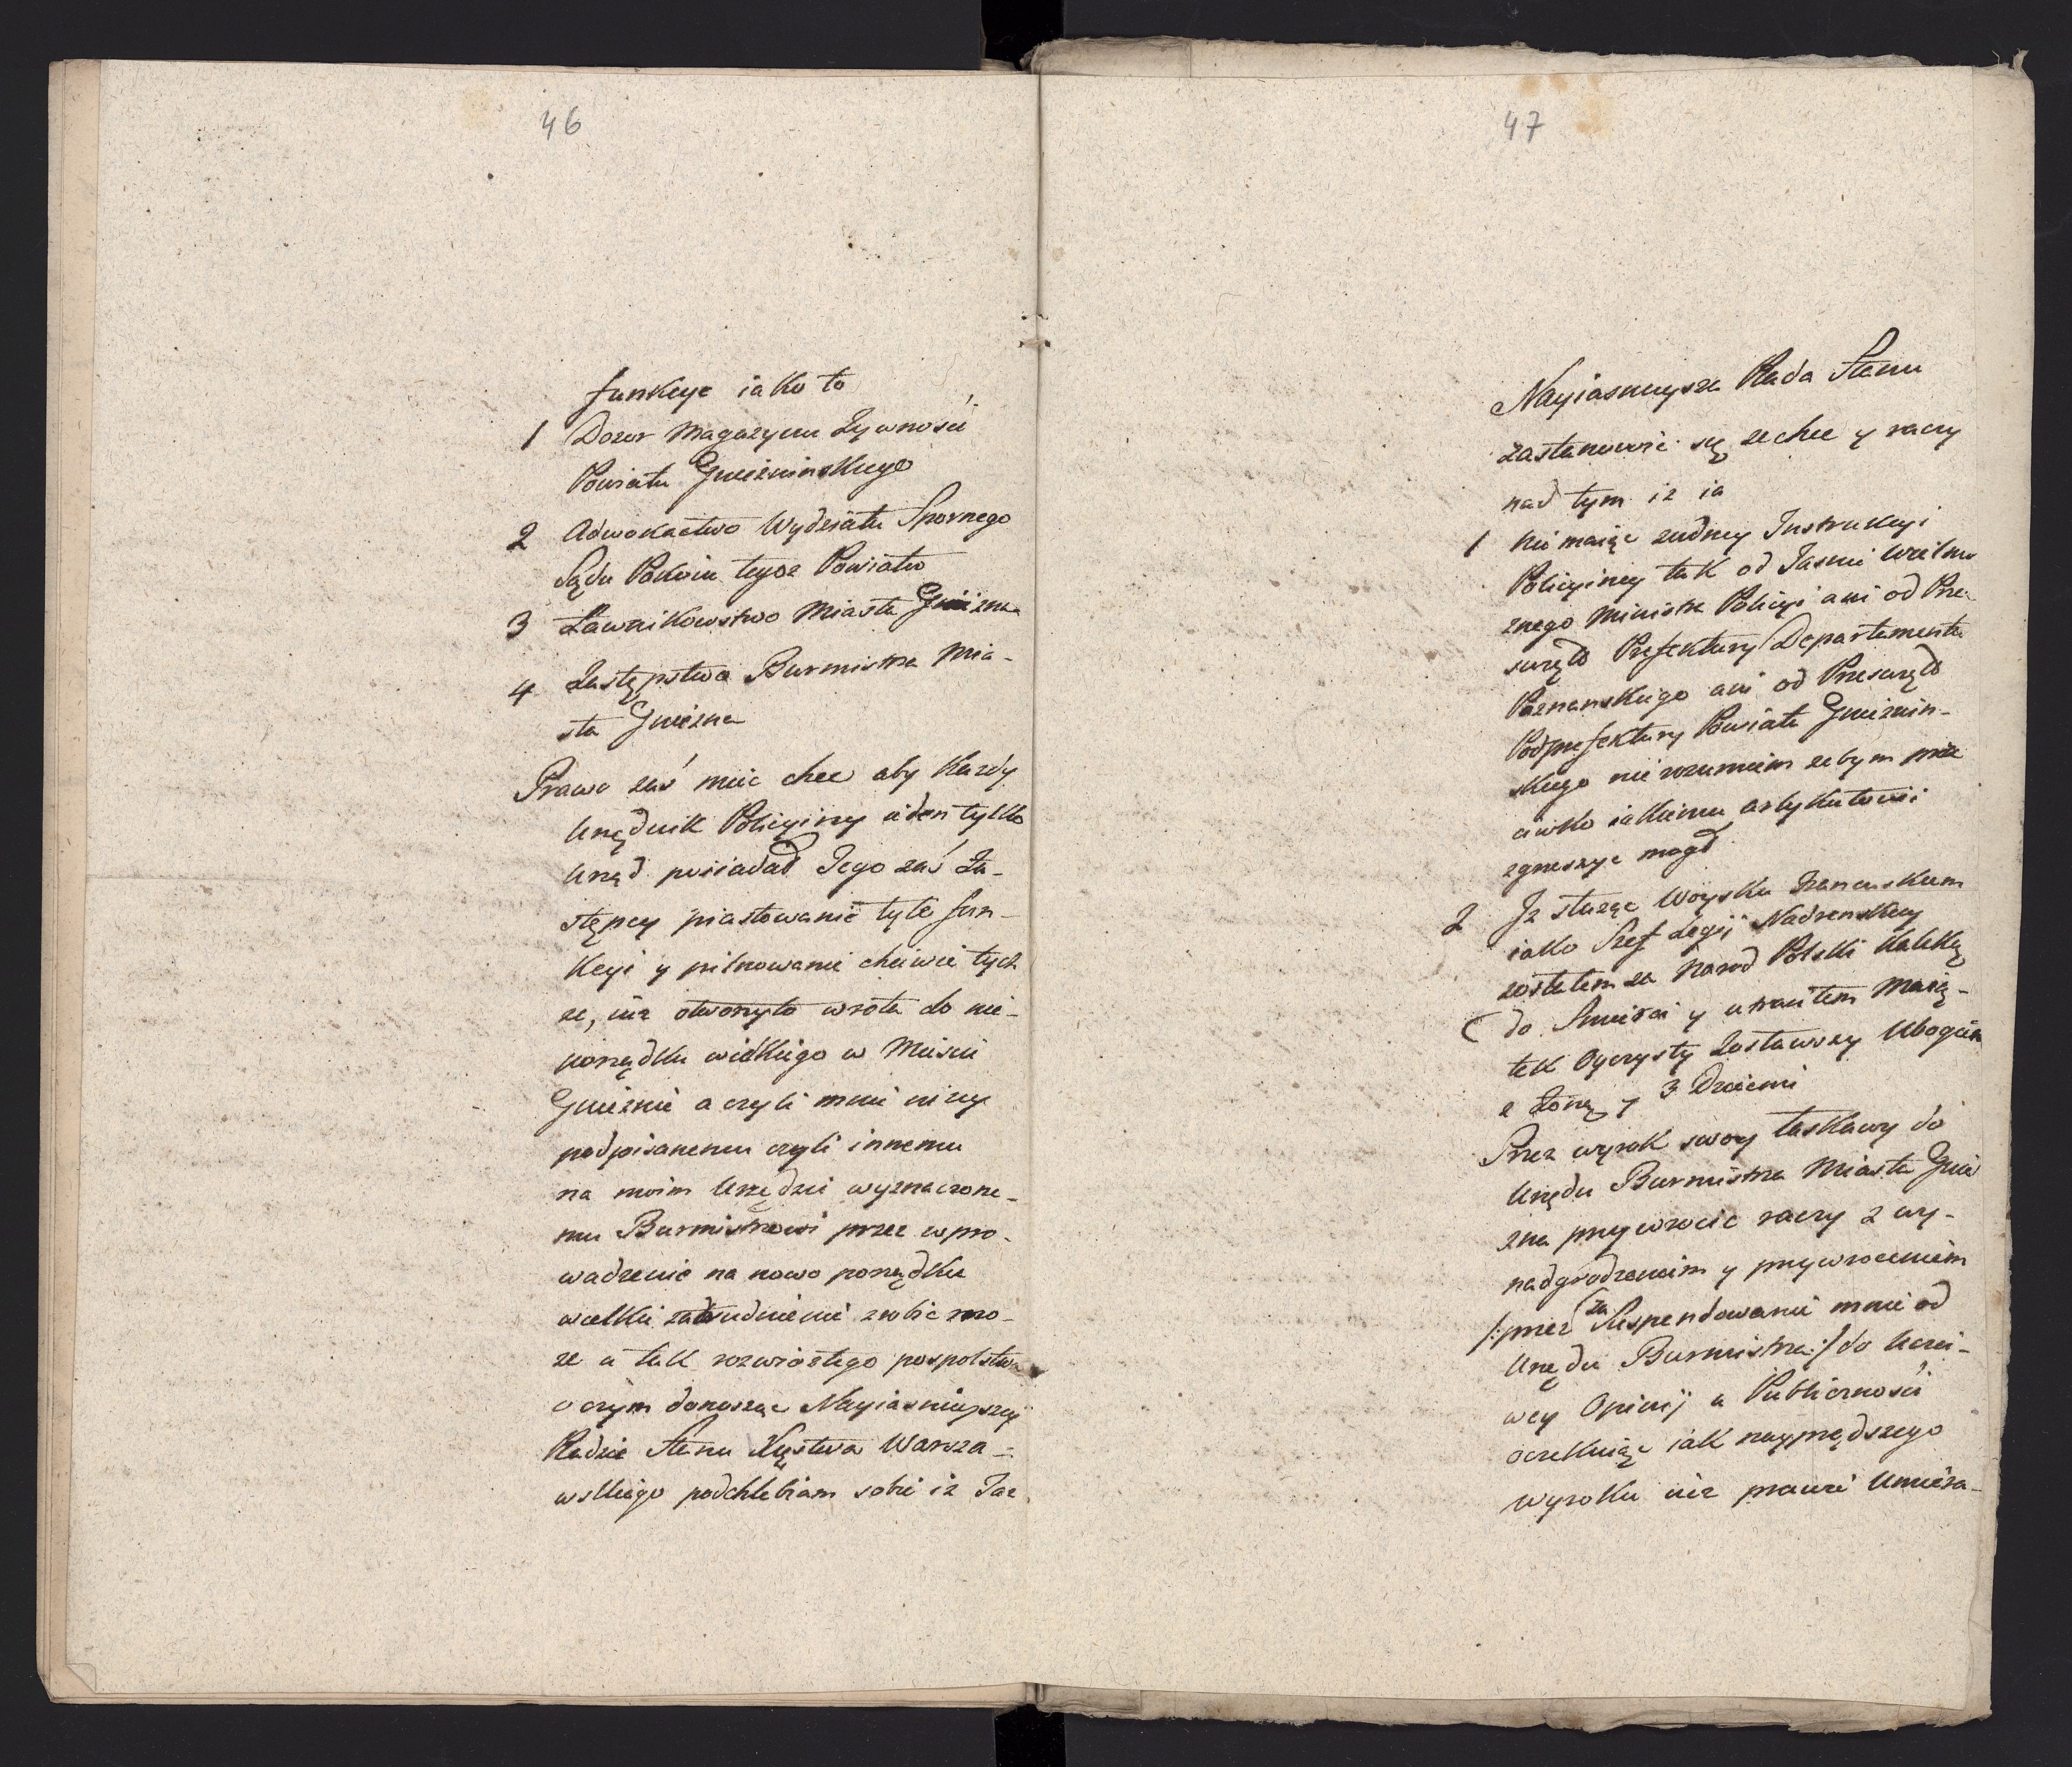 46
funkcye iako to
1 Dozor Magazynu Zywności
Powiatu Gniezninskiego
2 Adwokactwo Wydziału Spornego
Sądu Pokoiu tegoz Powiatu
3 Ławnikowstwo Miasta Gniezna
4 Zastępstwo Burmistrza Mia-
sta Gniezna
Prawo zaś mieć chce aby Kazdy
Urzędnik Policyiny ieden tylko
Urząd posiadał Jego zaś Za-
stępcy piastowanie tyle fun-
kcyi y pilnowanie chciwie tych
ze, iuz otworzyło wrota do nie-
porządku wielkiego w Mieście
Gnieznie a czyli mnie nizey
podpisanemu czyli innemu
na moim Urzędzie wyznaczone-
mu Burmistrzowi przez wpro-
wadzenie na nowo porządku
wielkie zatrudnienie zrobic mo-
ze a tak rozwiozłego pospolstwa
o czym donosząc Nayiasnieyszey
Radzie Stanu Xięstwa Warsza-
wskiego podchlebiam sobie iz Taz
47
Nayiasnieysza Rada Stanu
zastanowić się zechce y raczy
nad tym iz ia
1 Nie maiąc zadney Instrukcyi
Policyiney tak od Jasnie Wielmo
znego Ministra Policyi ani od Prze-
swiętey Prefektury Departamentu
Poznanskiego ani od Przeswiętey
Podprefektury Powiatu Gnieznin-
skiego nie rozumiem zebym prze
ciwko iakiemu artykułowi
zgrzeszyc mogł
2 Iz słuząc Woysku Francuskiem
iako Szef Legii Nadrenskiey
zostałem za Narod Polski Kaleką
do Smierci y utraciłem Maią-
tek Oyczysty Zostawszy Ubogim
z Zoną y 3 Dziecimi
Przez wyrok swoy łaskawy do
Urzędu Burmistrza Miasta Gnie
zna przywrocic raczy z wy-
nadgrodzeniem y przywroceniem
/:przez za Suspendowanie mnie od
Urzędu Burmistrza:/ do Uczci-
wey Opinij u Publiczności
oczekuiąc iak nayprędszego
Wyroku iuz prawie Umiera-